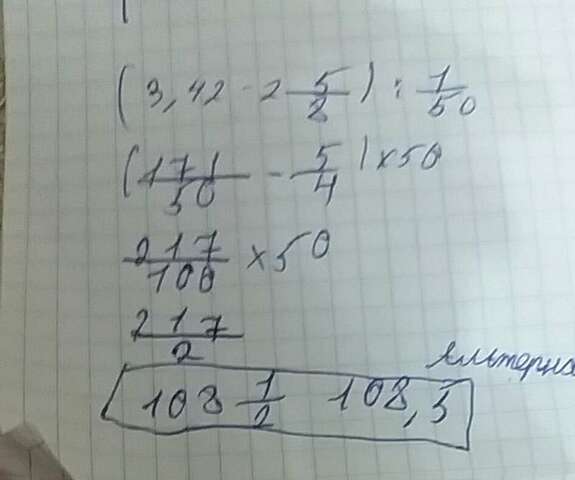 (3,42 - 2 5/8) : 1/50
(171/50 - 5/4) x 50
217/100 x 50
217/2
Альтерна
108 1/2 108,5